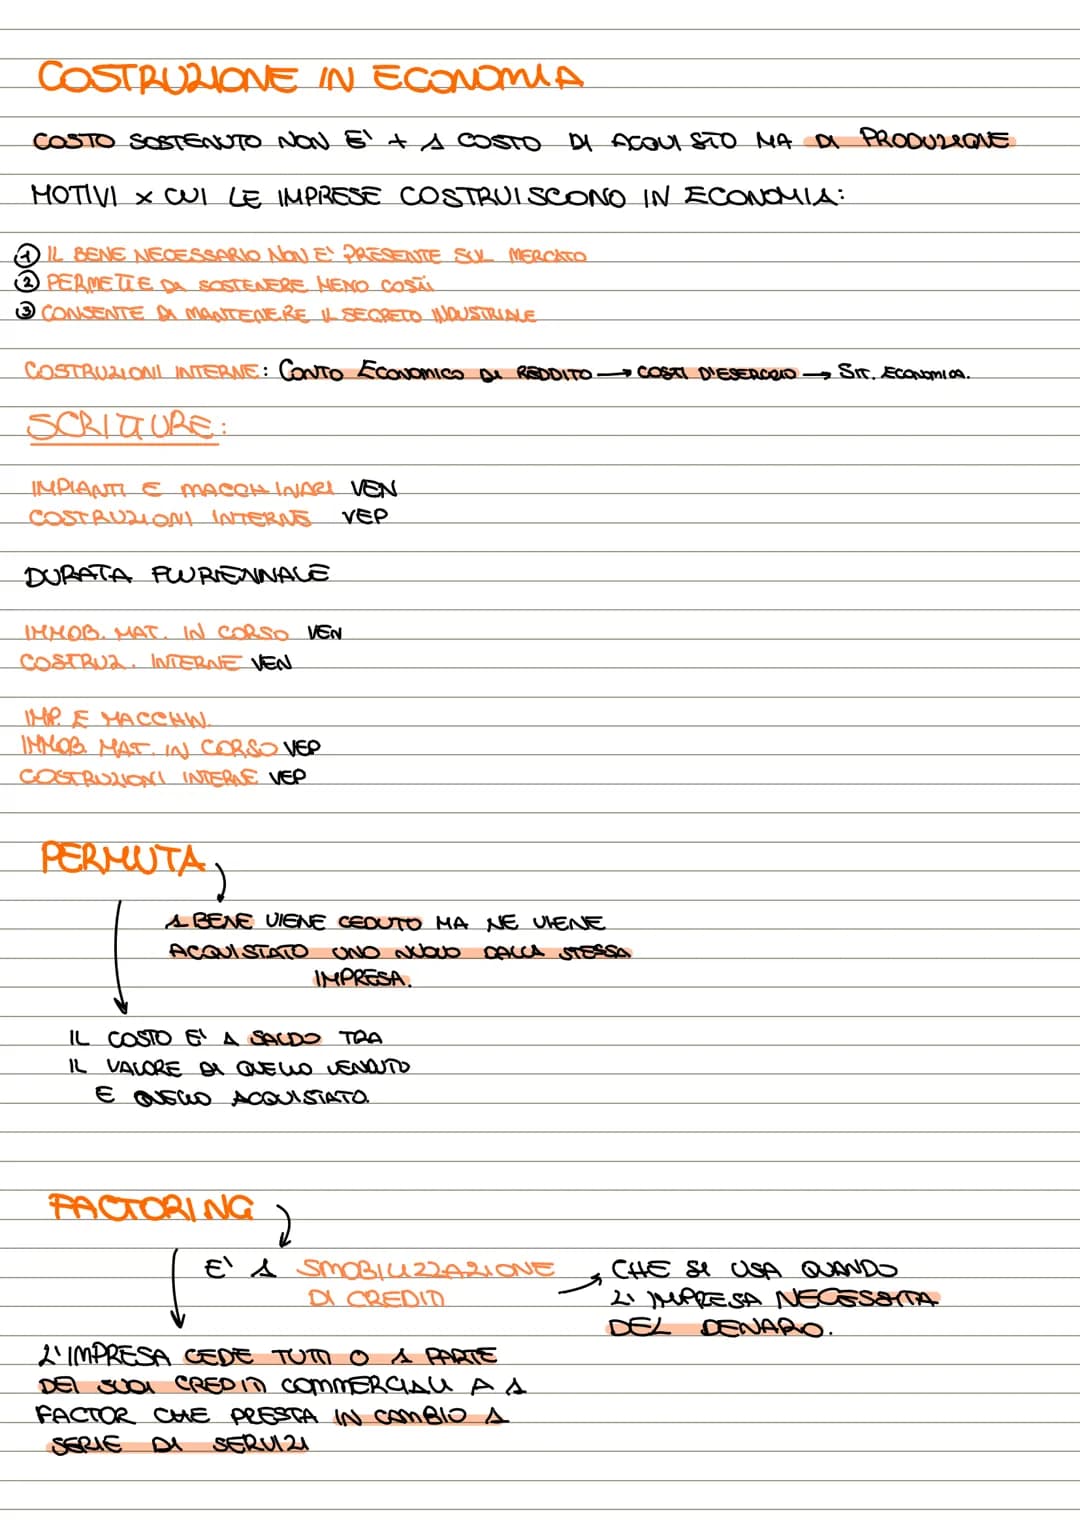 COSTRUZIONE IN ECONOMIA
COSTO SOSTENUTO NON E' + 1 COSTO DI ACQUISTO MA DI PRODUZIONE
MOTIVI x CUI LE IMPRESE COSTRUISCONO IN ECONOMIA:
① IL BENE NECESSARIO NON E' PRESENTE SUL MERCATO
② PERMETTE DI SOSTENERE MENO COSTI
③ CONSENTE DI MANTENERE IL SEGRETO INDUSTRIALE
COSTRUZIONI INTERNE: CONTO ECONOMICO DI REDDITO → COSTI D'ESERCIZIO → SIT. ECONOMICA.
SCRITTURE:
IMPIANTI E MACCHINARI VEN
COSTRUZIONI INTERNE VEP
DURATA PLURIENNALE
IMMOB. MAT. IN CORSO VEN
COSTRUZ. INTERNE VEN
IMP. E MACCHIN.
IMMOB. MAT. IN CORSO VEP
COSTRUZIONI INTERNE VEP
PERMUTA
1 BENE VIENE CEDUTO MA NE VIENE
ACQUISTATO UNO NUOVO DALLA STESSA
IMPRESA.
IL COSTO E' 1 SALDO TRA
IL VALORE DI QUELLO VENDUTO
E QUELLO ACQUISTATO.
FACTORING
E' 1 SMOBILIZZAZIONE
DI CREDITI
CHE SI USA QUANDO
L'IMPRESA NECESSITA
DEL DENARO.
L'IMPRESA CEDE TUTTI O 1 PARTE
DEI SUOI CREDITI COMMERCIALI A 1
FACTOR CHE PRESTA IN CAMBIO 1
SERIE DI SERVIZI